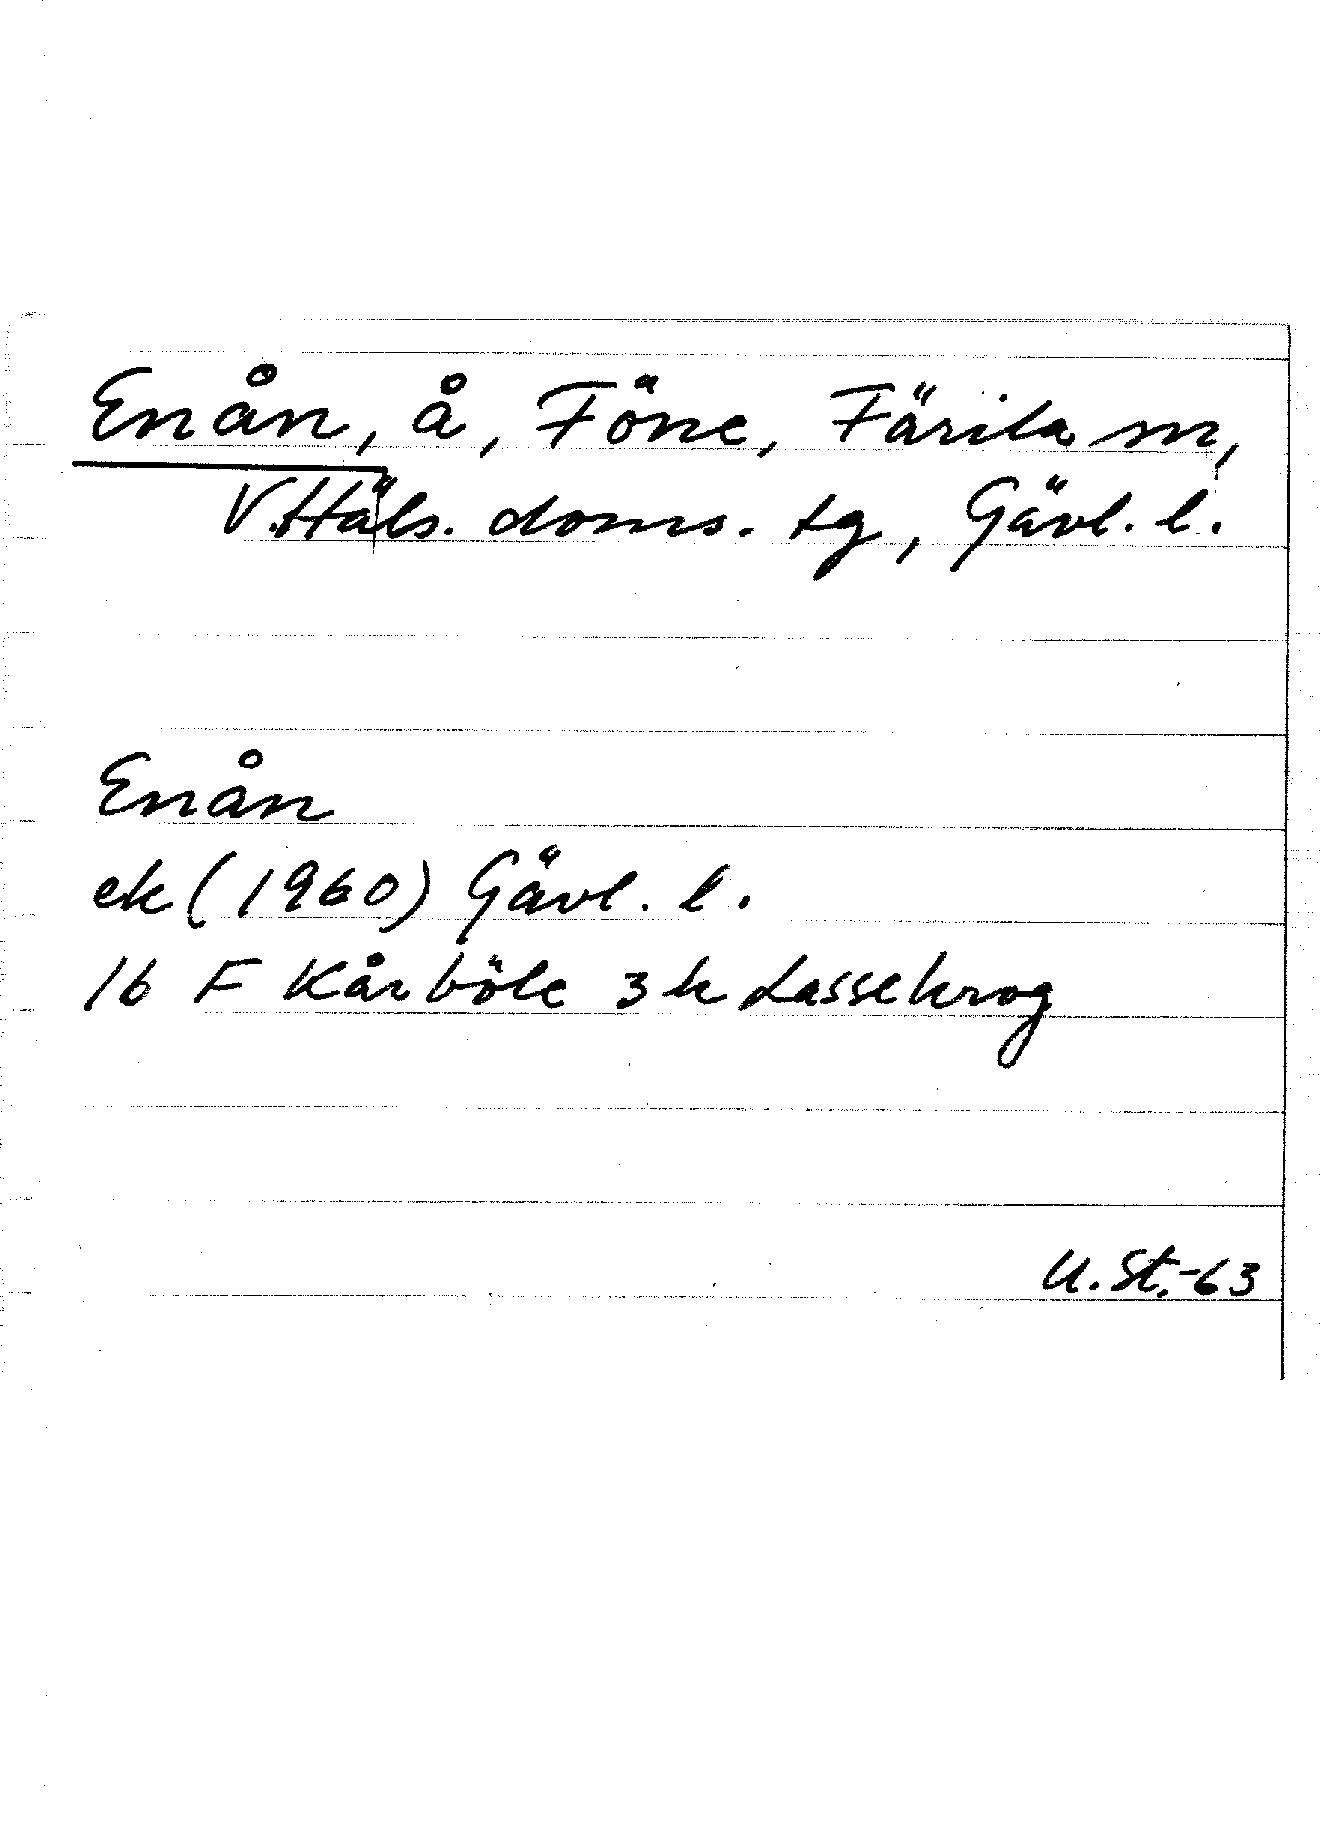 Enån, å, Föne, Färila sn,
V.Häls. doms. tg, Gävl. l.
Enån
ek (1960) Gävl. l.
16 F Kårböle 3 k Lassekrog
U.St.-63